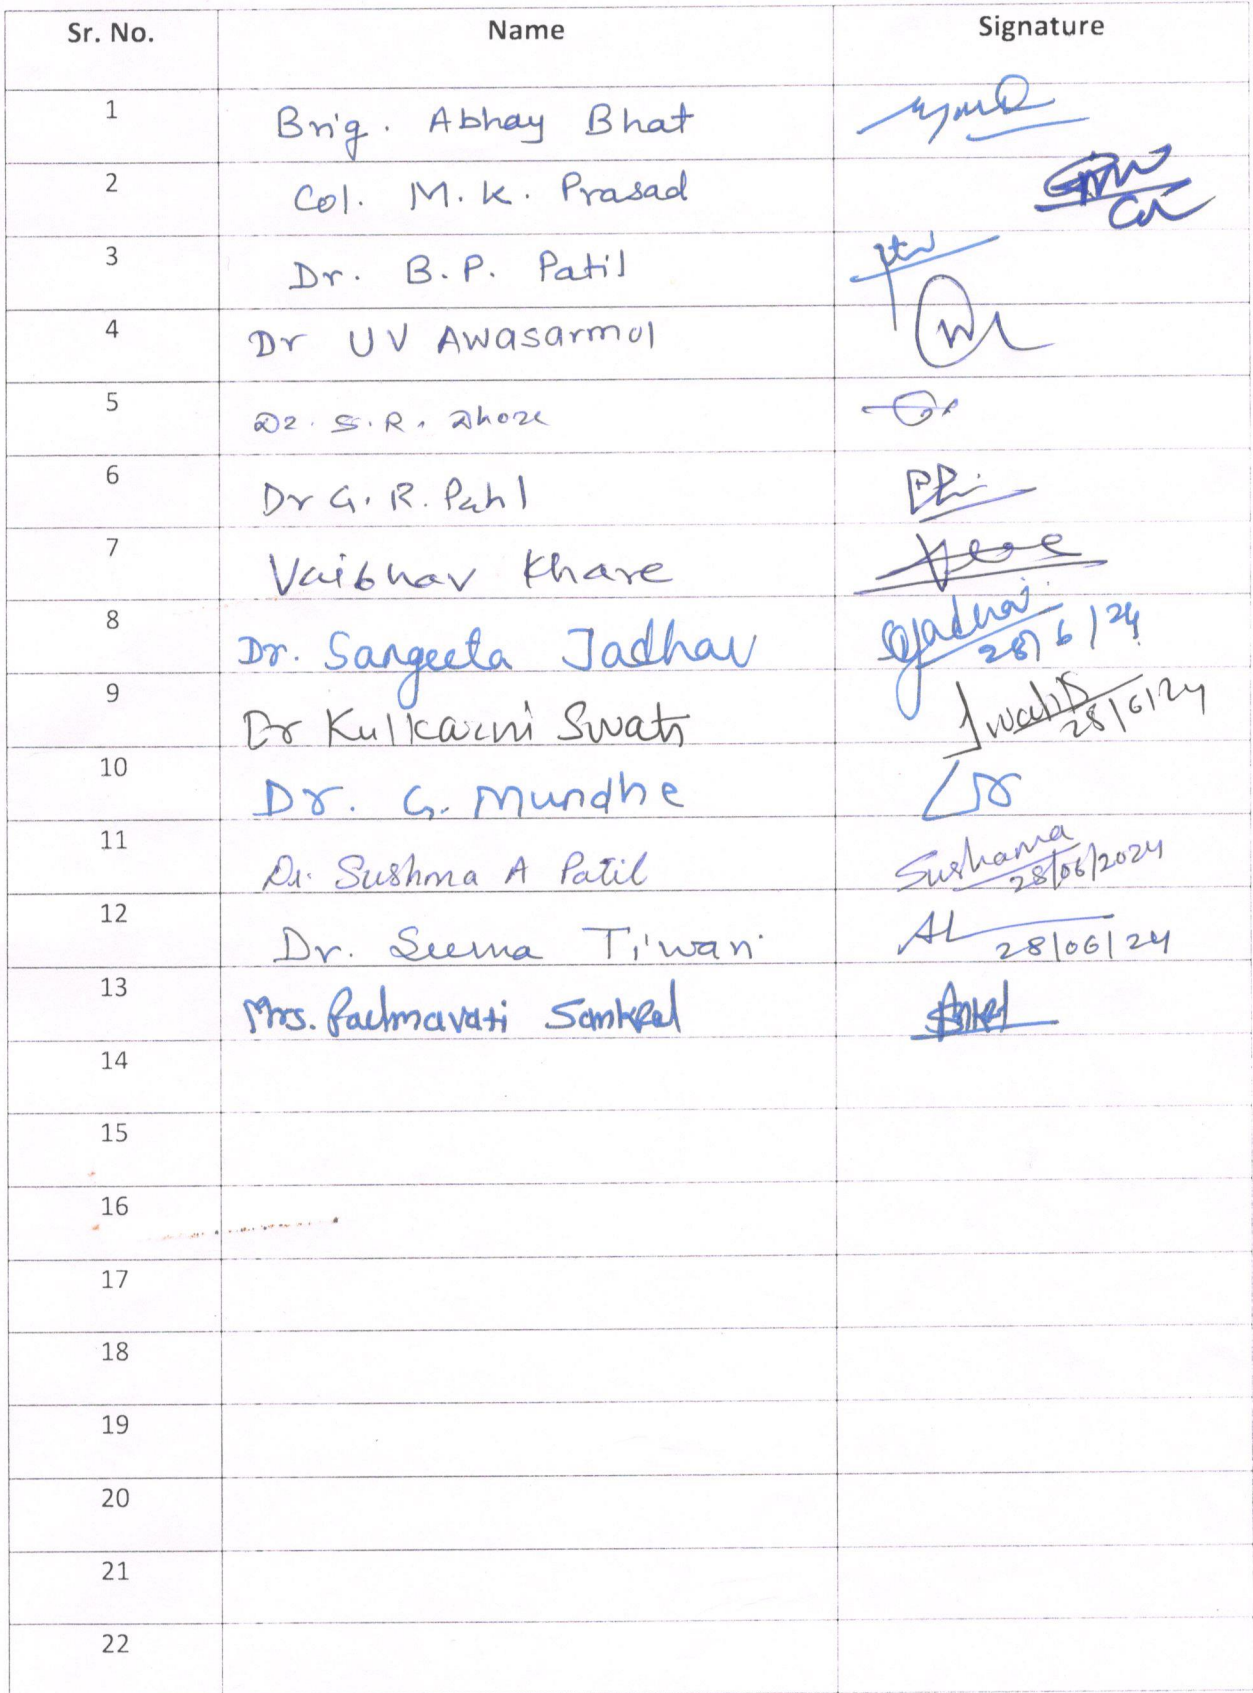 Sr. No. Name Signature
1 Brig. Abhay Bhat
2 Col. M. K. Prasad
3 Dr. B. P. Patil
4 Dr UV Awasarmol
5 Dr. S. R. Dhore
6 Dr G. R. Patil
7 Vaibhav Khare
8 Dr. Sangeeta Jadhav Jadhav 28/6/24
9 Dr Kulkarni Swati Swati 28/6/24
10 Dr. G. Mundhe
11 Dr. Sushma A Patil Sushama 28/06/2024
12 Dr. Seema Tiwari 28/06/24
13 Mrs. Padmavati Sankpal
14
15
16
17
18
19
20
21
22